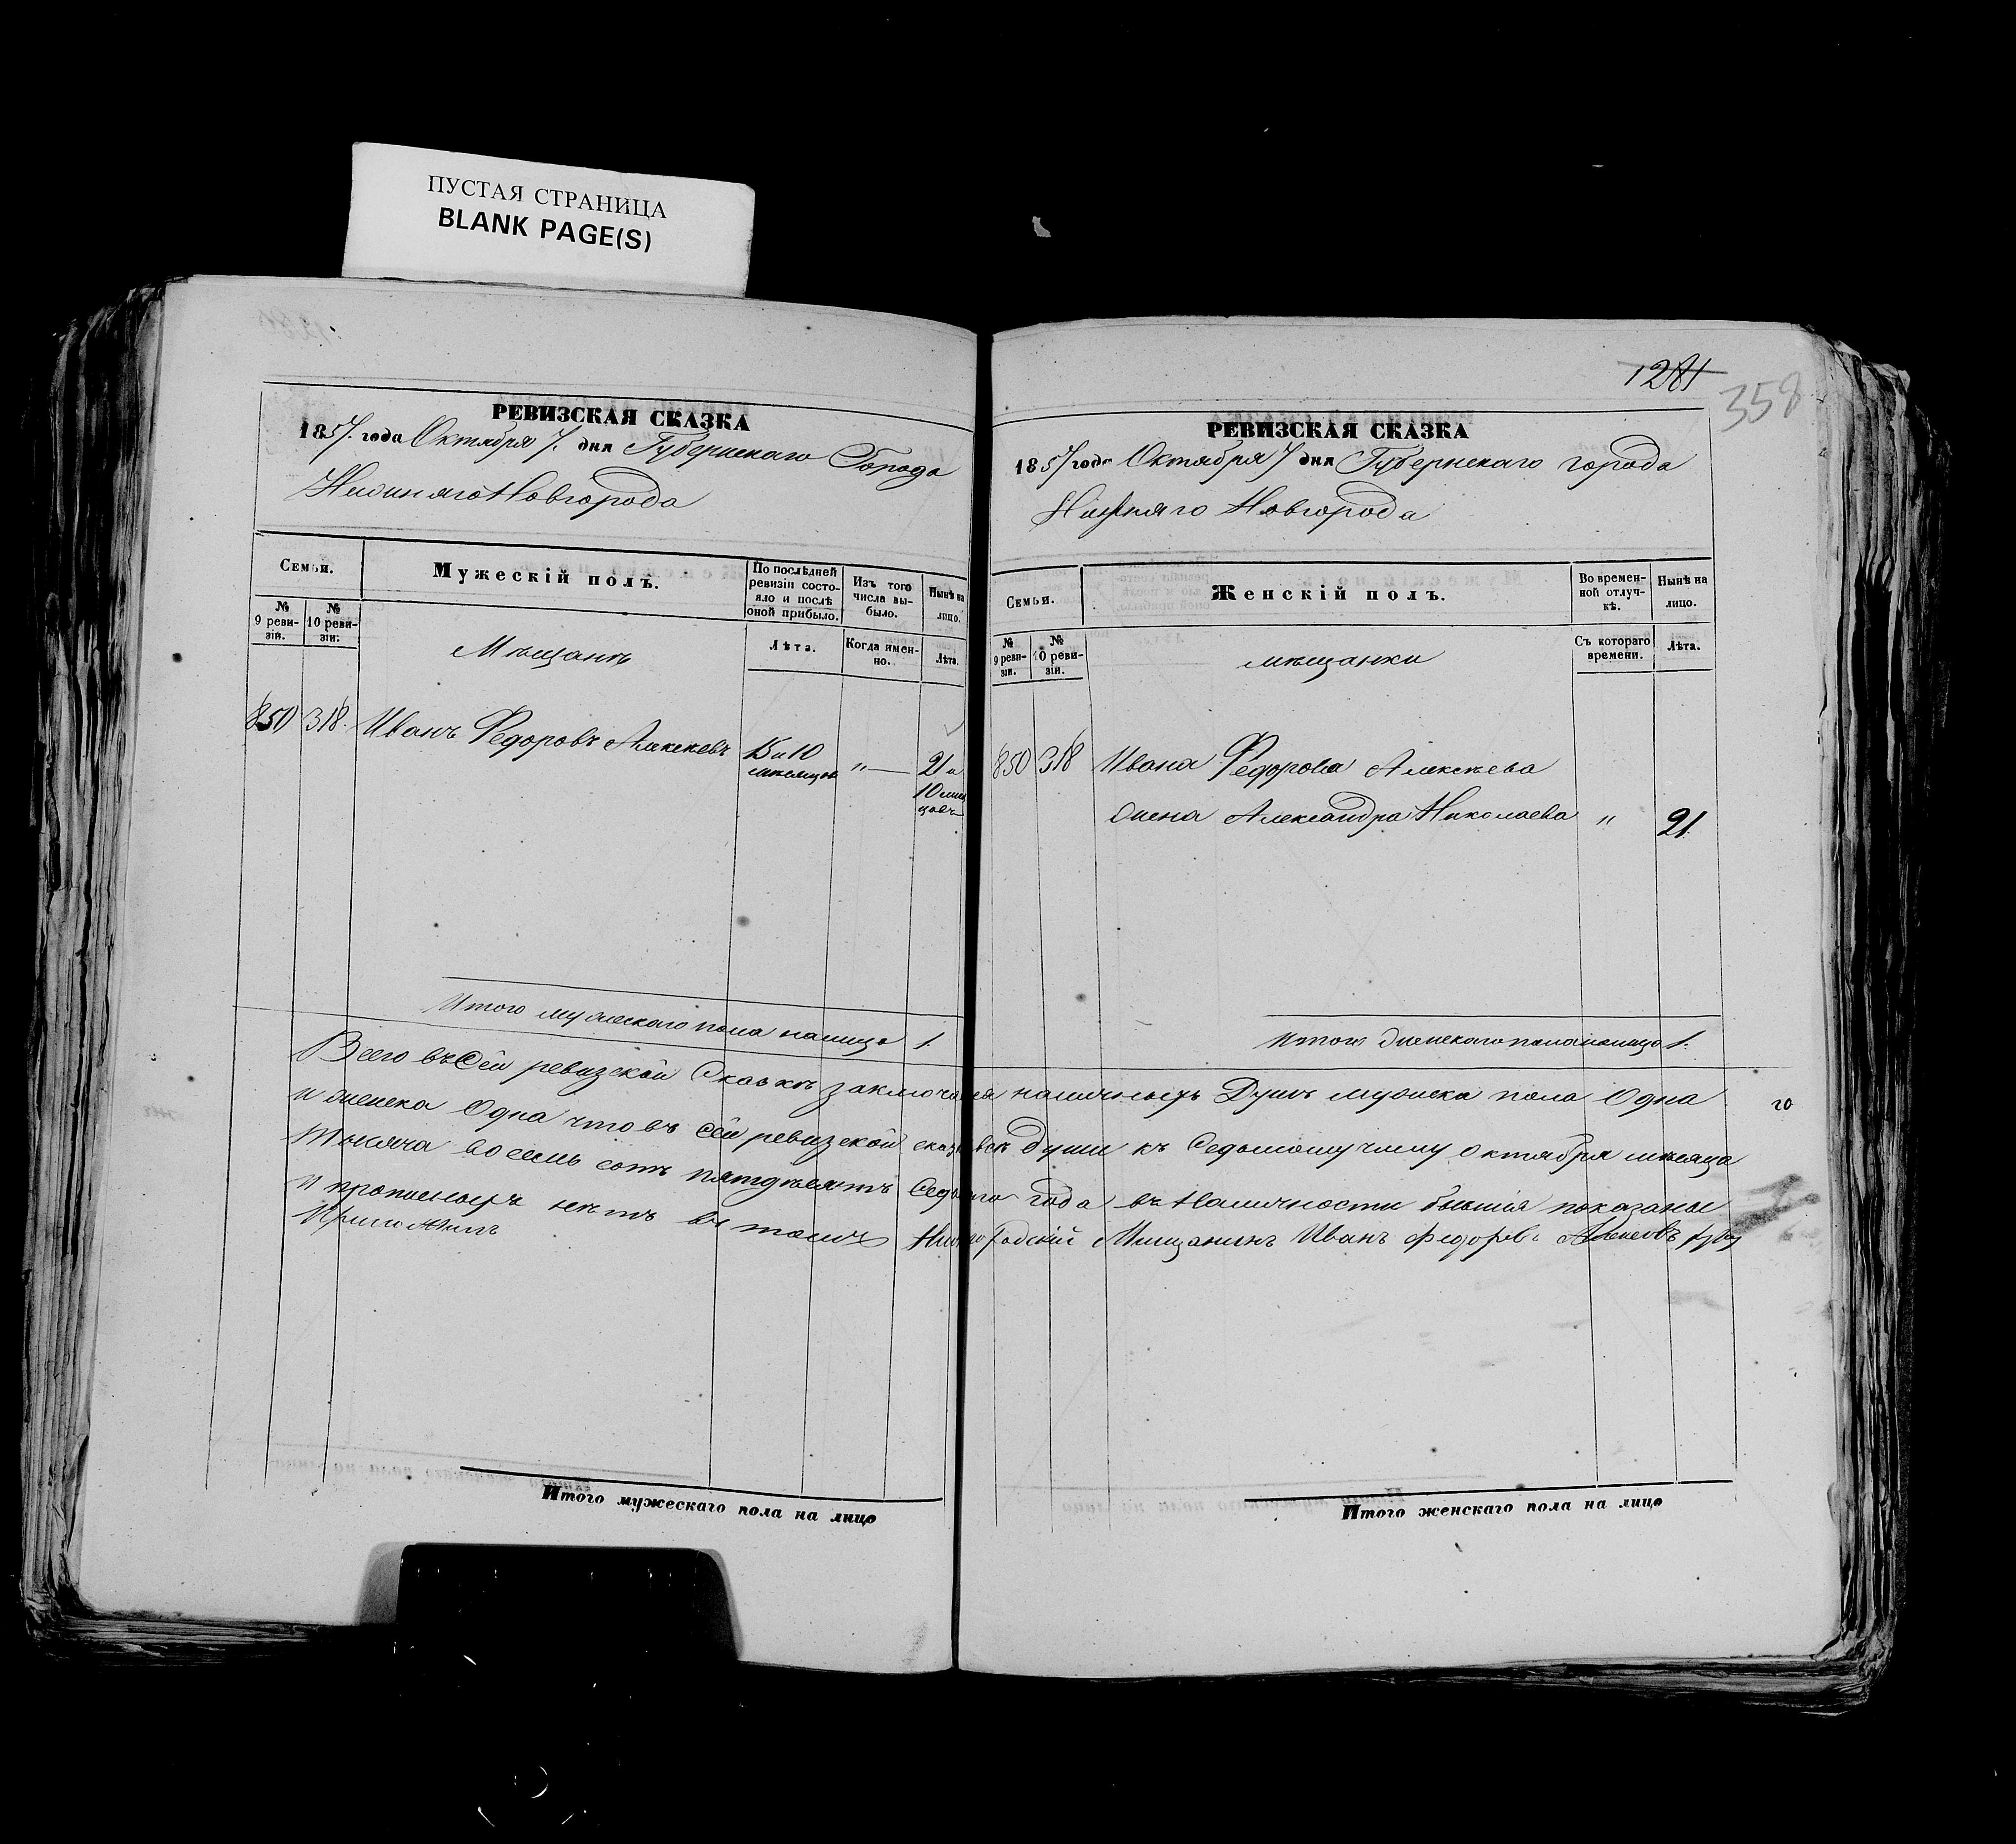 ПУСТАЯ СТРАНИЦА
BLANK PAGE(S)
РЕВИЗСКАЯ СКАЗКА
1857. года Октября 7. дня Губернскаго Города
Нижняго Новгорода
Семьи.
№ 9 реви-зіи.
№ 10 реви-зіи.
Мужескій полъ.
По послѣдней ревизіи состо-яло и послѣ оной прибыло.
Изъ того числа вы-было.
Нынѣ на лицо.
Лѣта.
Когда имен-но.
Лѣта.
Мѣщанъ
850 318. Иванъ Федоровъ Алексѣевъ 15 и 10 мѣсяцов " — 21 и 10 мѣся цовъ
Итого мужескаго пола налицо 1
1281
358
РЕВИЗСКАЯ СКАЗКА
1857 года Октября 7 дня Губернскаго города
Нижняго Новгорода
Семьи.
№ 9 реви-зіи.
№ 10 реви-зіи.
Женскій полъ.
Во времен-ной отлуч-кѣ.
Нынѣ на лицо.
Съ котораго времени.
Лѣта.
мѣщанки
850 318 Ивана Федорова Алексѣева
жена Александра Николаева " 21
Итого женскаго пола налицо 1.
Всего въ Сей ревизской Сказкѣ заключается наличныхъ Душъ мужска пола Одна
и женска Одна что въ Сей ревизской сказкѣ всѣ души къ Седьмому числу октября мѣсяца
тысяча восемь сотъ пятдѣсятъ Седьмого года въ наличности бывшія показаны
и прописныхъ нѣтъ въ томъ Нижегородскій Мещанинъ Иванъ Федоровъ
20
Итого мужескаго пола на лицо
Итого женскаго пола на лицо